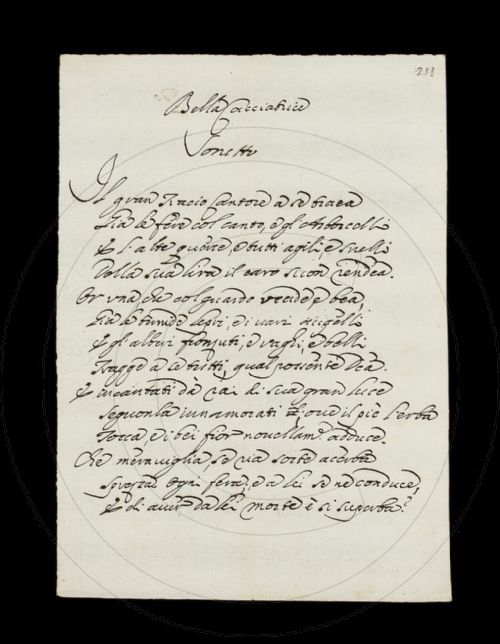 213
Bella Cacciatrice
Sonetto
Il gran Tracio Cantore a se traea
Già le fere col canto, e gl' Arborcelli
E l'alte querce, e tutti agili, e snelli
Della sua lira il caro suon rendea.
Or una che col guardo uccide e bea,
Già le timide lepri, e i vari augelli
E gl' alberi fronzuti, e vaghi, e belli
Tragge a se tutti, qual possente Dea.
E incantati da rai di sua gran luce
seguonla innamorati ove il piè l'erba
Tocca, e i bei fior novellam. adduce.
Che meraviglia, se via sorte acerba
sprezza ogni fera, e a lei se ne conduce,
E di aver da lei morte è sì superba?